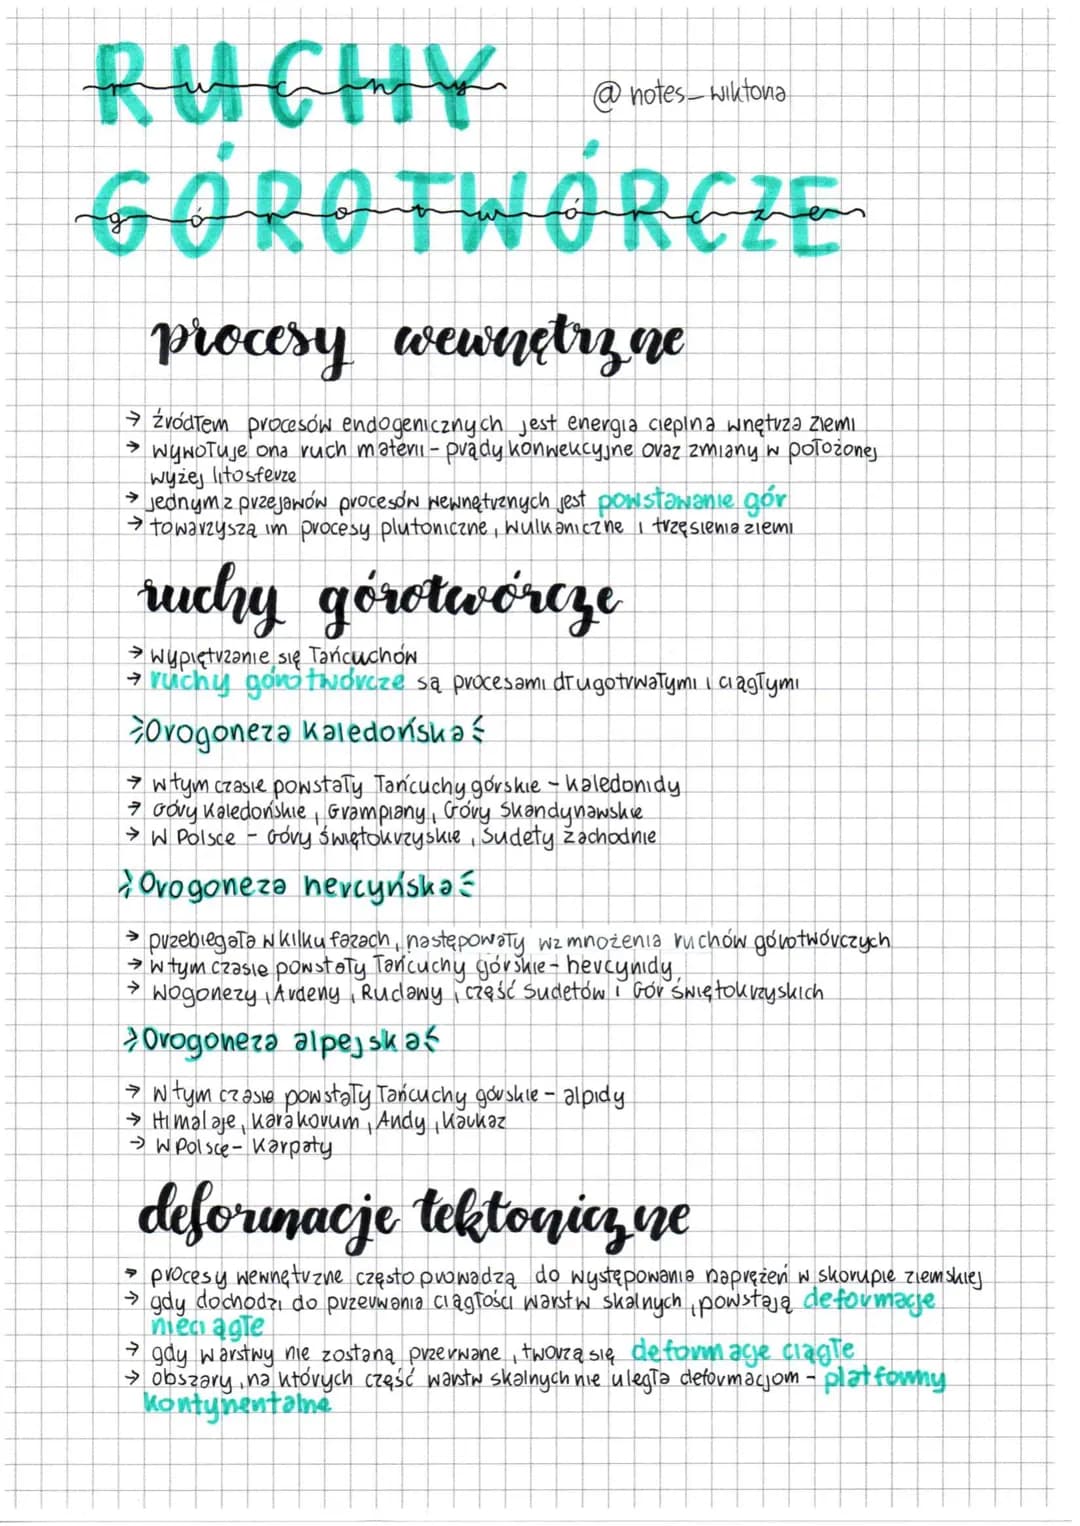 RUCHY
ruchy
@notes_wiktoria
GÓROTWÓRCZE
górotwórcze
procesy wewnętrzne
→ źródłem procesów endogenicznych jest energia cieplna wnętrza ziemi
→ wywołuje ona ruch materii - prądy konwekcyjne oraz zmiany w położonej
wyżej litosferze
→ jednym z przejawów procesów wewnętrznych jest powstawanie gór
→ towarzyszą im procesy plutoniczne, wulkaniczne i trzęsienia ziemi
ruchy górotwórcze
→ wypiętrzanie się łańcuchów
→ ruchy górotwórcze są procesami długotrwałymi i ciągłymi
Orogoneza kaledońska
→ w tym czasie powstały łańcuchy górskie - kaledonidy
→ Góry Kaledońskie, Grampiany, Góry Skandynawskie
→ W Polsce - Góry Świętokrzyskie, Sudety Zachodnie
Orogoneza hercyńska
→ przebiegała w kilku fazach, następowały wzmnożenia ruchów górotwórczych
→ w tym czasie powstały łańcuchy górskie - hercynidy
→ Wogonezy, Ardeny, Rudawy, część Sudetów i Gór Świętokrzyskich
Orogoneza alpejska
→ W tym czasie powstały łańcuchy górskie - alpidy
→ Himalaje, Karakorum, Andy, Kaukaz
→ W Polsce - Karpaty
deformacje tektoniczne
→ procesy wewnętrzne często prowadzą do występowania naprężeń w skorupie ziemskiej
→ gdy dochodzi do przerwania ciągłości warstw skalnych, powstają deformacje
nieciągłe
→ gdy warstwy nie zostaną przerwane, tworzą się deformacje ciągłe
→ obszary, na których część warstw skalnych nie uległa deformacjom - platformy
kontynentalne